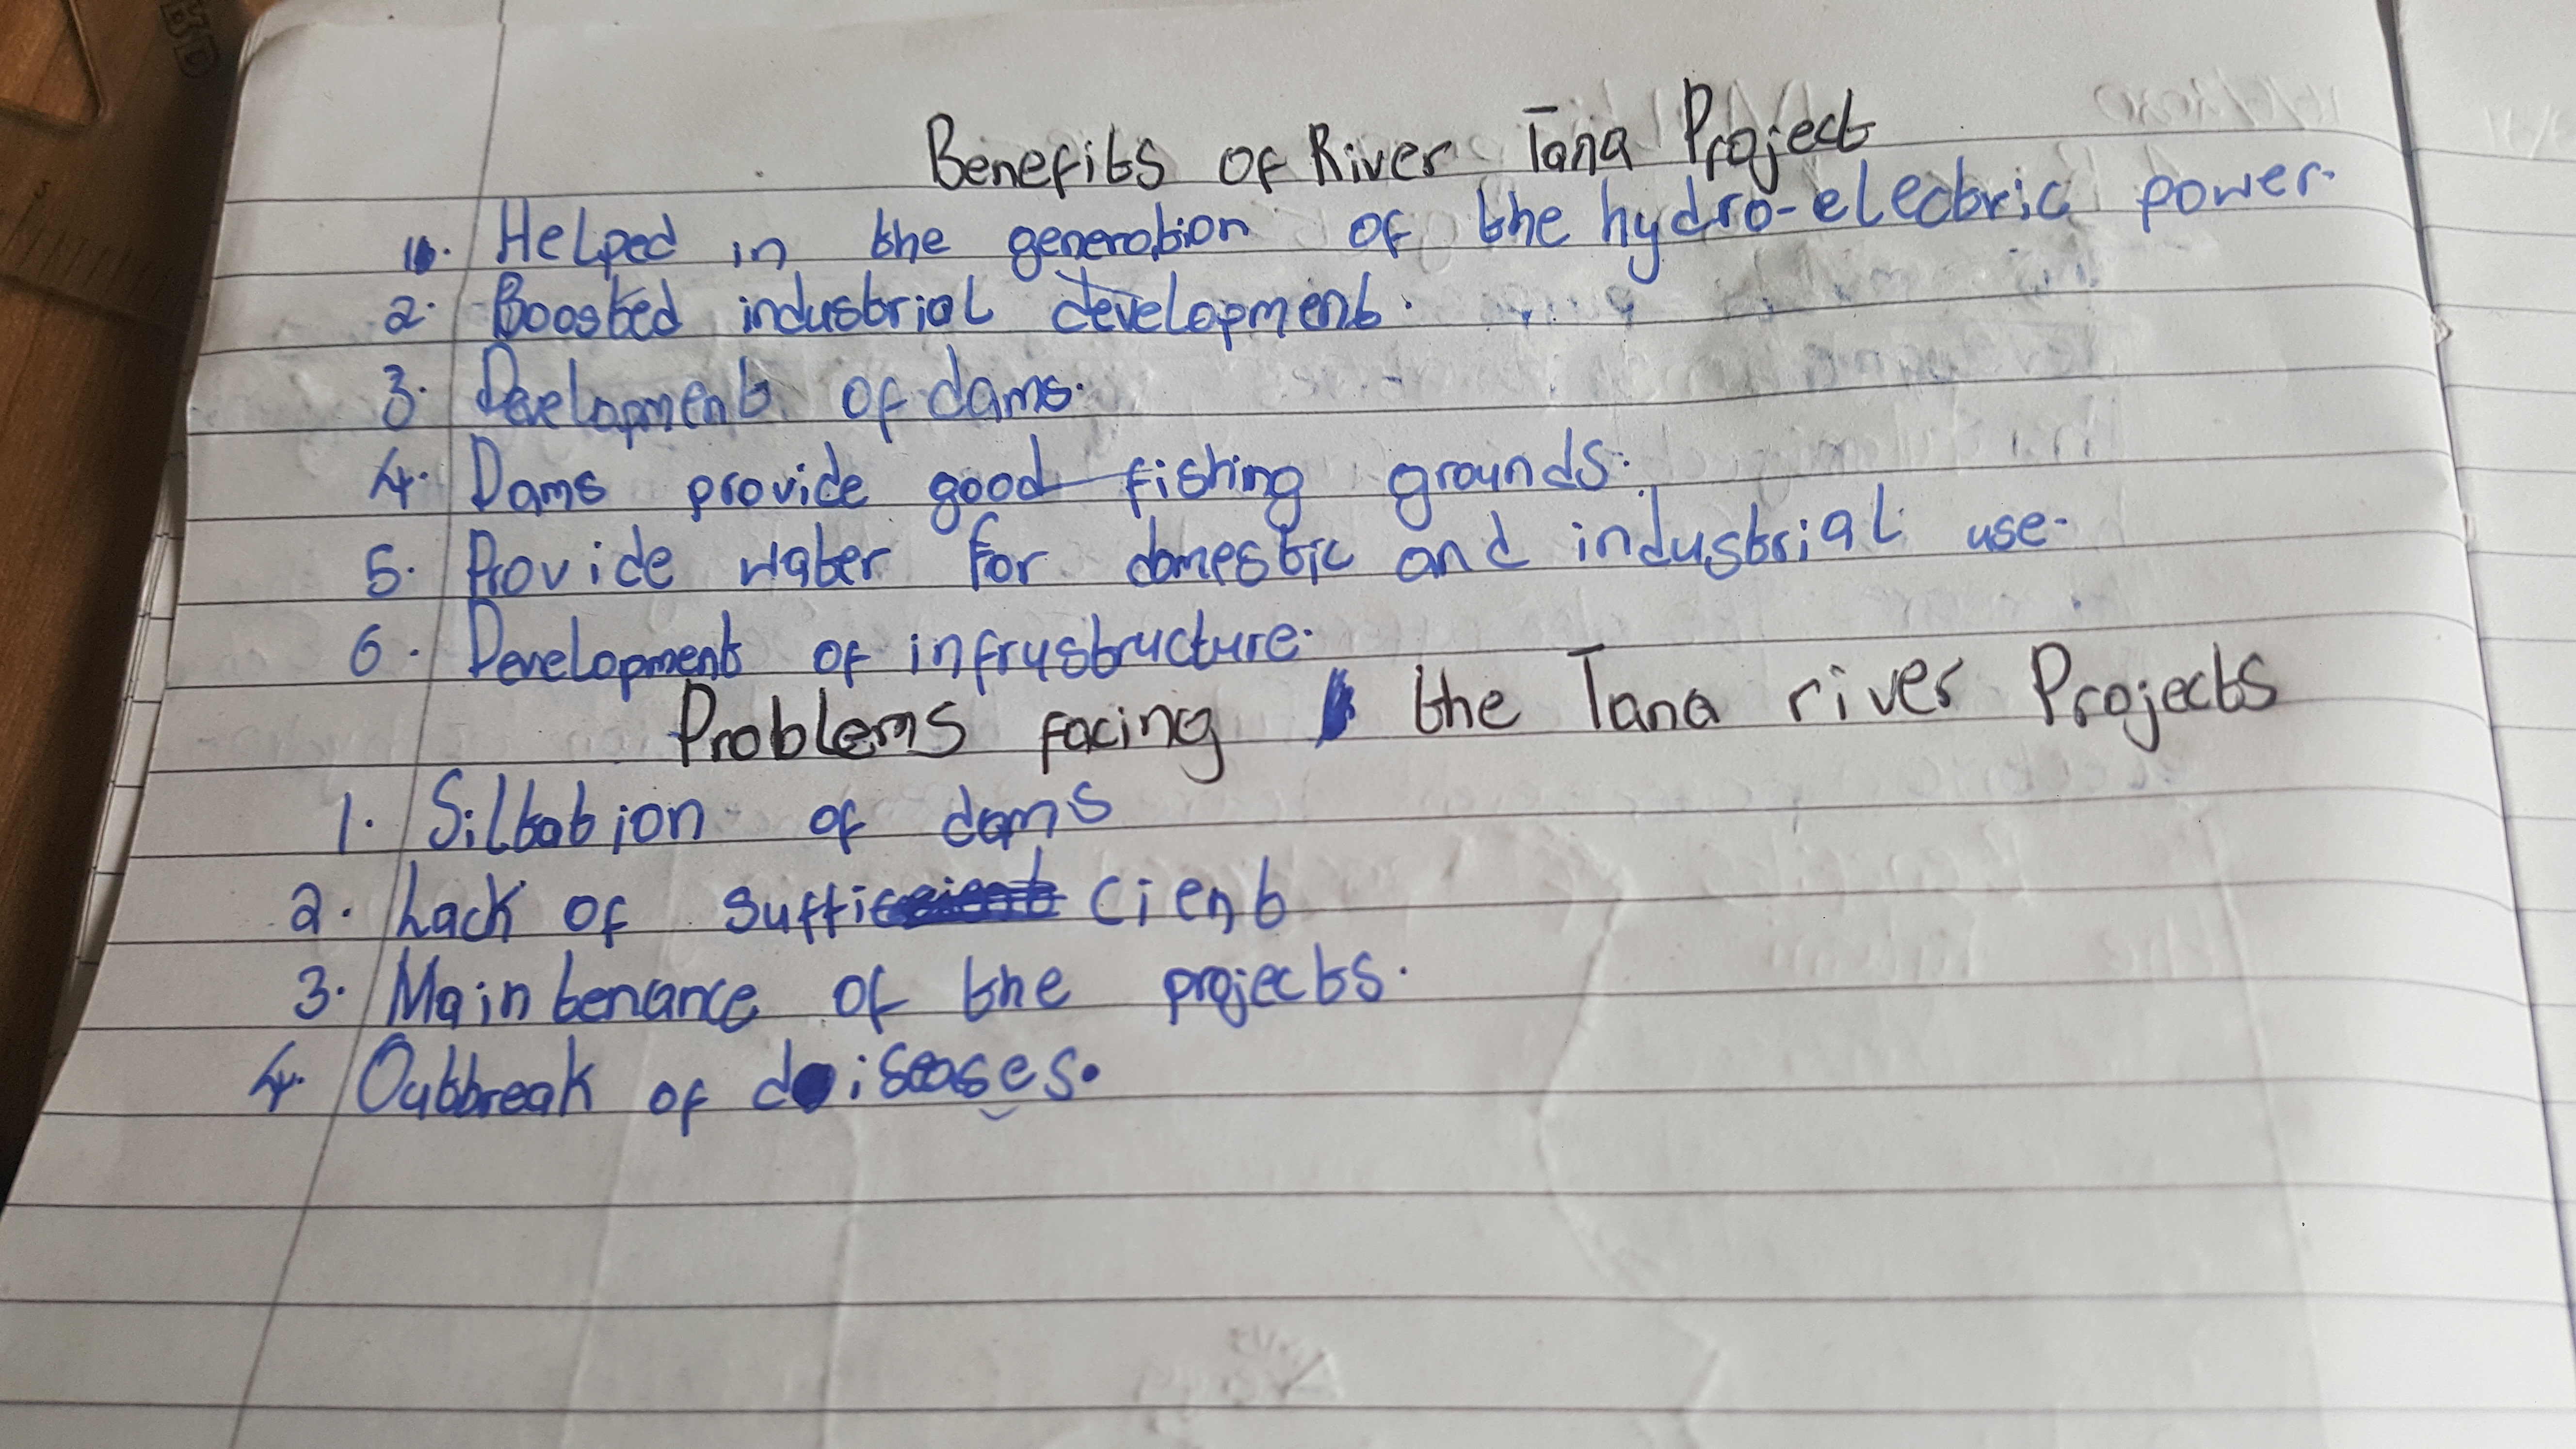 Benefits of River Tana Project
1. Helped in the generation of the hydro-electric power.
2. Boosted industrial development.
3. Development of dams.
4. Dams provide good fishing grounds.
5. Provide water for domestic and industrial use.
6. Development of infrustructure.
Problems facing the Tana river Projects
1. Siltation of dams
2. Lack of sufficient
3. Maintenance of the projects.
4. Outbreak of diseases.